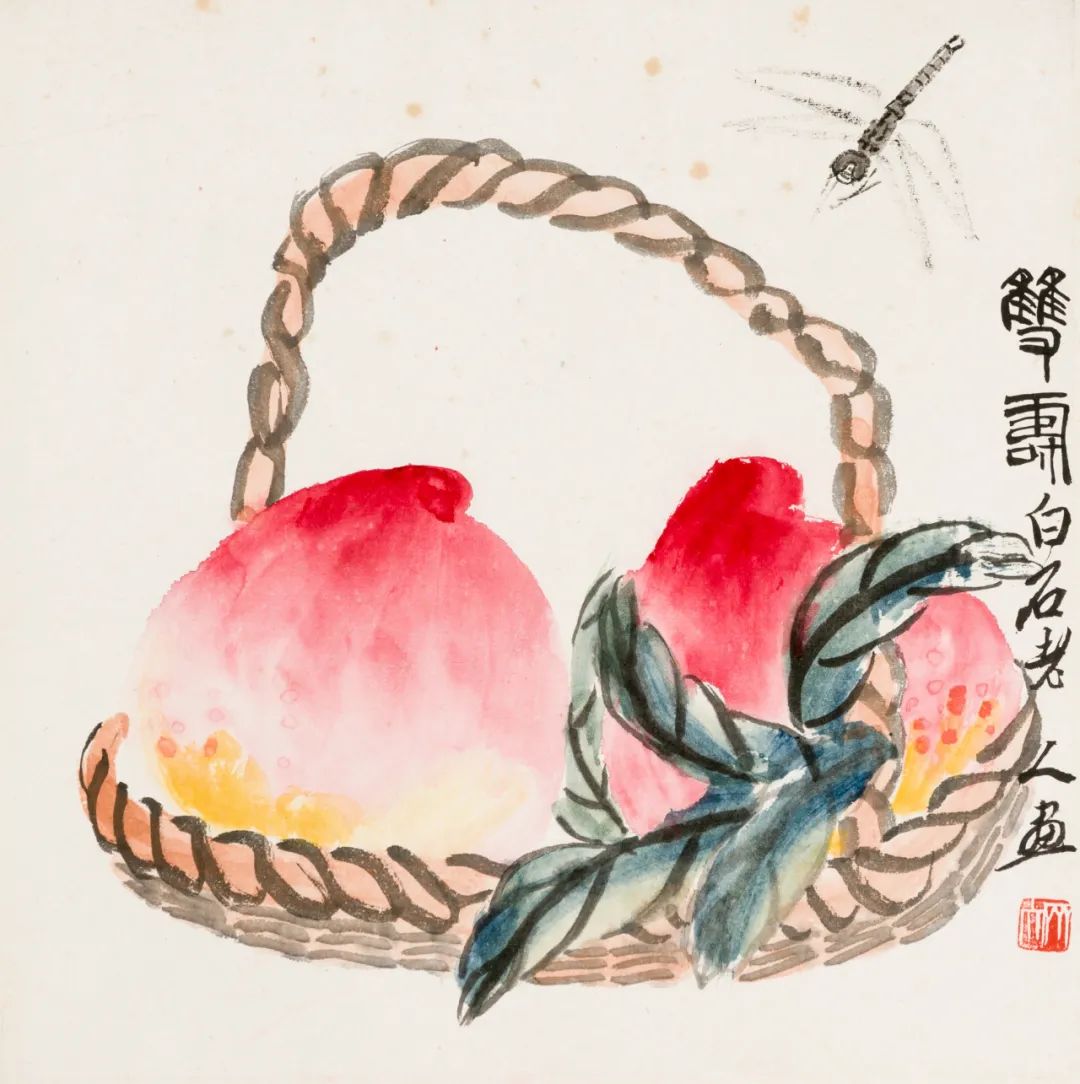 雙壽白石老人畫